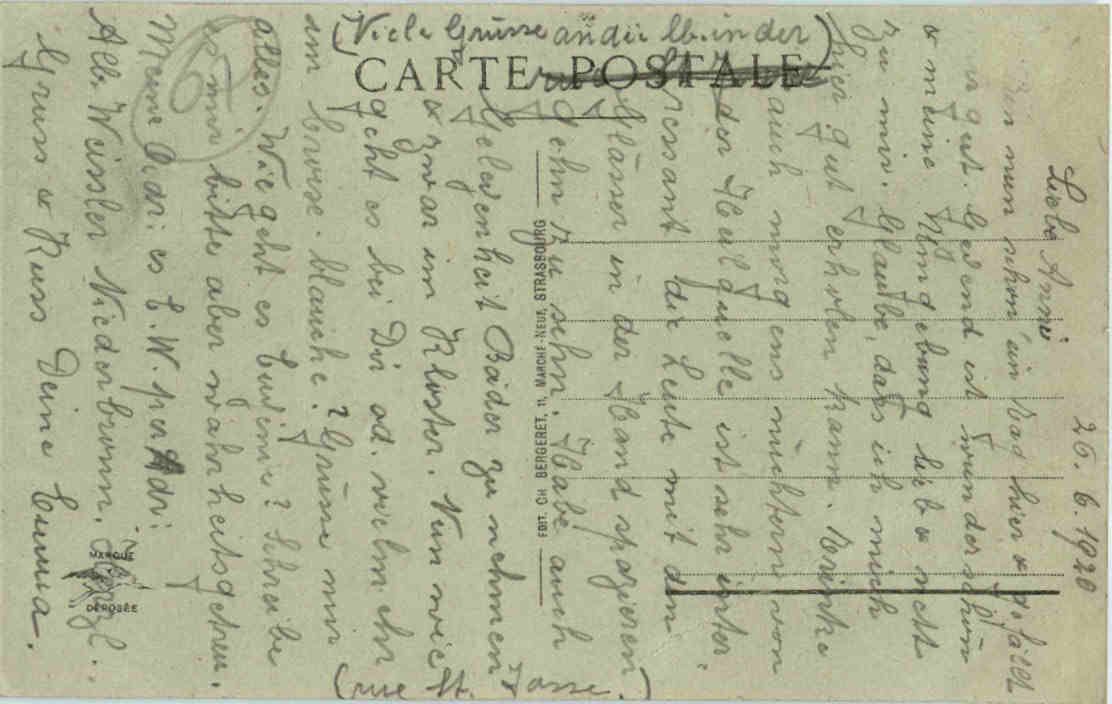 26. 6. 1920
Liebe Anni.
Bin nun schon ein Tag hier & gefällt
mir gut. Gegend ist wunderschön
& meine Umgebung lieb & nett
zu mir. Glaube, dass ich mich
hier gut erholen kann. Trinke
auch morgens nüchtern von
der Heilquelle ist sehr inter-
ressant die Leute mit den
Gläser in der Hand spazieren
gehn zu sehn. Habe auch
Gelegenheit Bäder zu nehmen
& zwar im Kloster. Nun wie
geht es bei Dir od. vielmehr
im
alles. Wie geht es Eugenie? Schreibe
es mir bitte aber wahrheitsgetreu.
Meine Adr: is E. W. per Adr:
Alb. Weissler Niederbrunn.
Gruss & Kuss Deine Emma.
(Viele Grüsse an die lb. in der
(rue St.
CARTE POSTALE
EDIT. CH. BERGERET, 11, MARCHÉ-NEUF, STRASBOURG
MARQUE
DÉPOSÉE